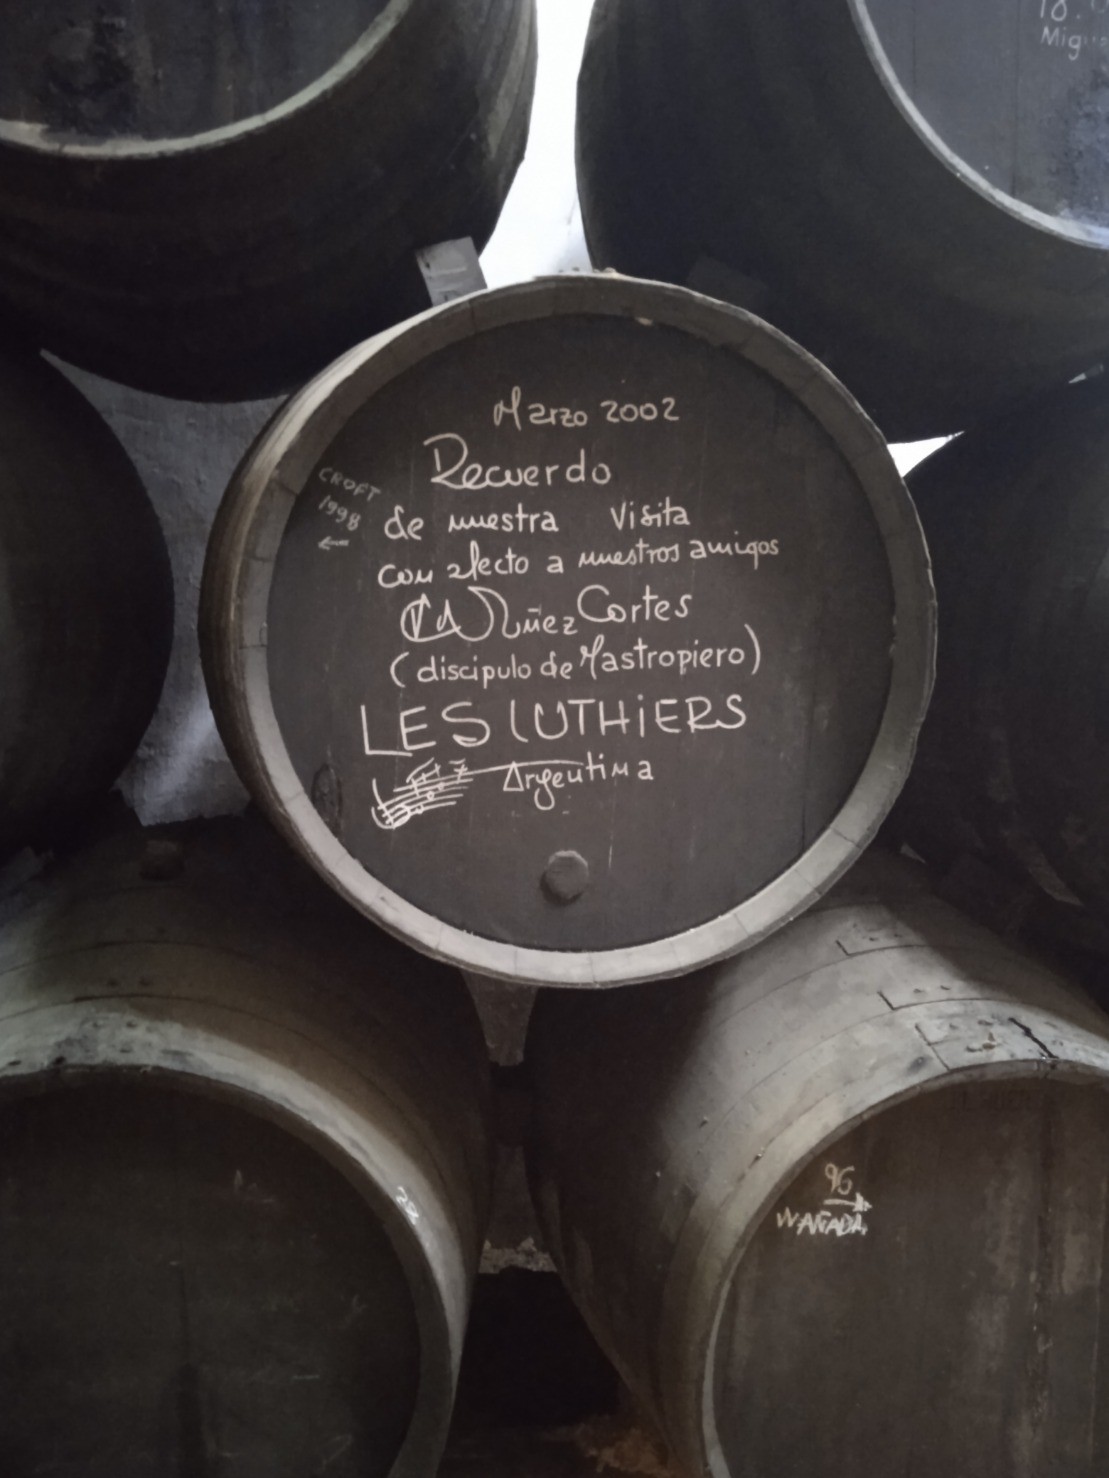 18.
Mig
Marzo 2002
Recuerdo
CROFT
1998
←
de nuestra Visita
con afecto a nuestros amigos
Núñez Cortes
(discipulo de Mastropiero)
LES LUTHiERS
Argentina
96